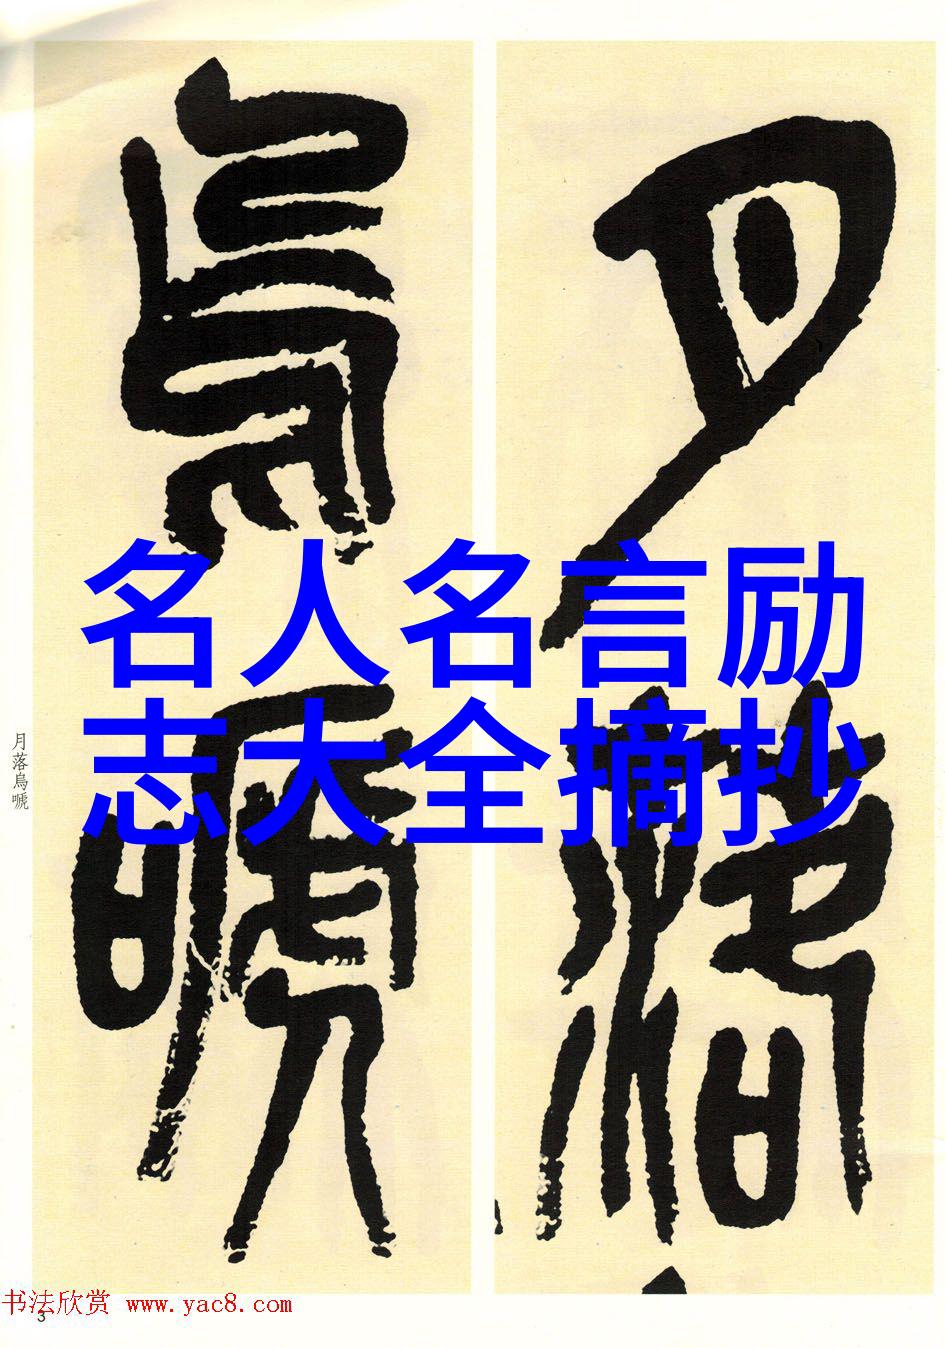 月落
烏嗁
名人名言励
志大全摘抄
月落烏嗁
书法欣赏 www.yac8.com
3